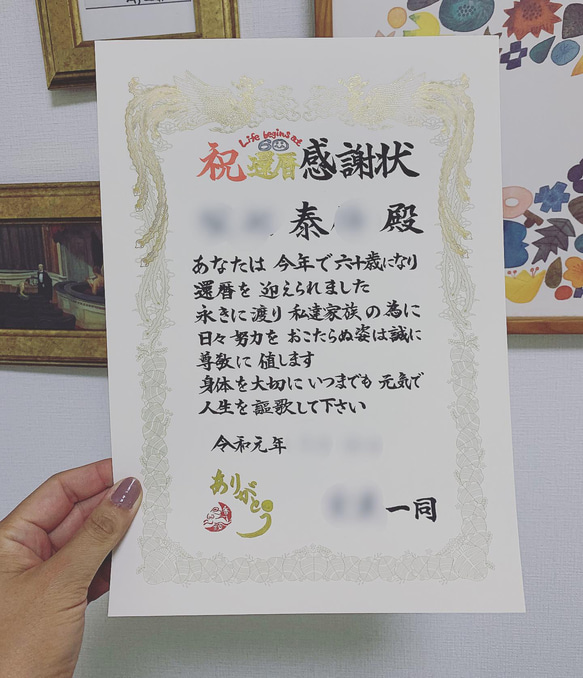 Life begins at
60
祝還暦感謝状
泰 殿
あなたは 今年で六十歳になり
還暦を 迎えられました
永きに渡り 私達家族の為に
日々努力を おこたらぬ姿は誠に
尊敬に 値します
身体を大切に いつまでも 元気で
人生を謳歌して下さい
令和元年
ありがとう
一同